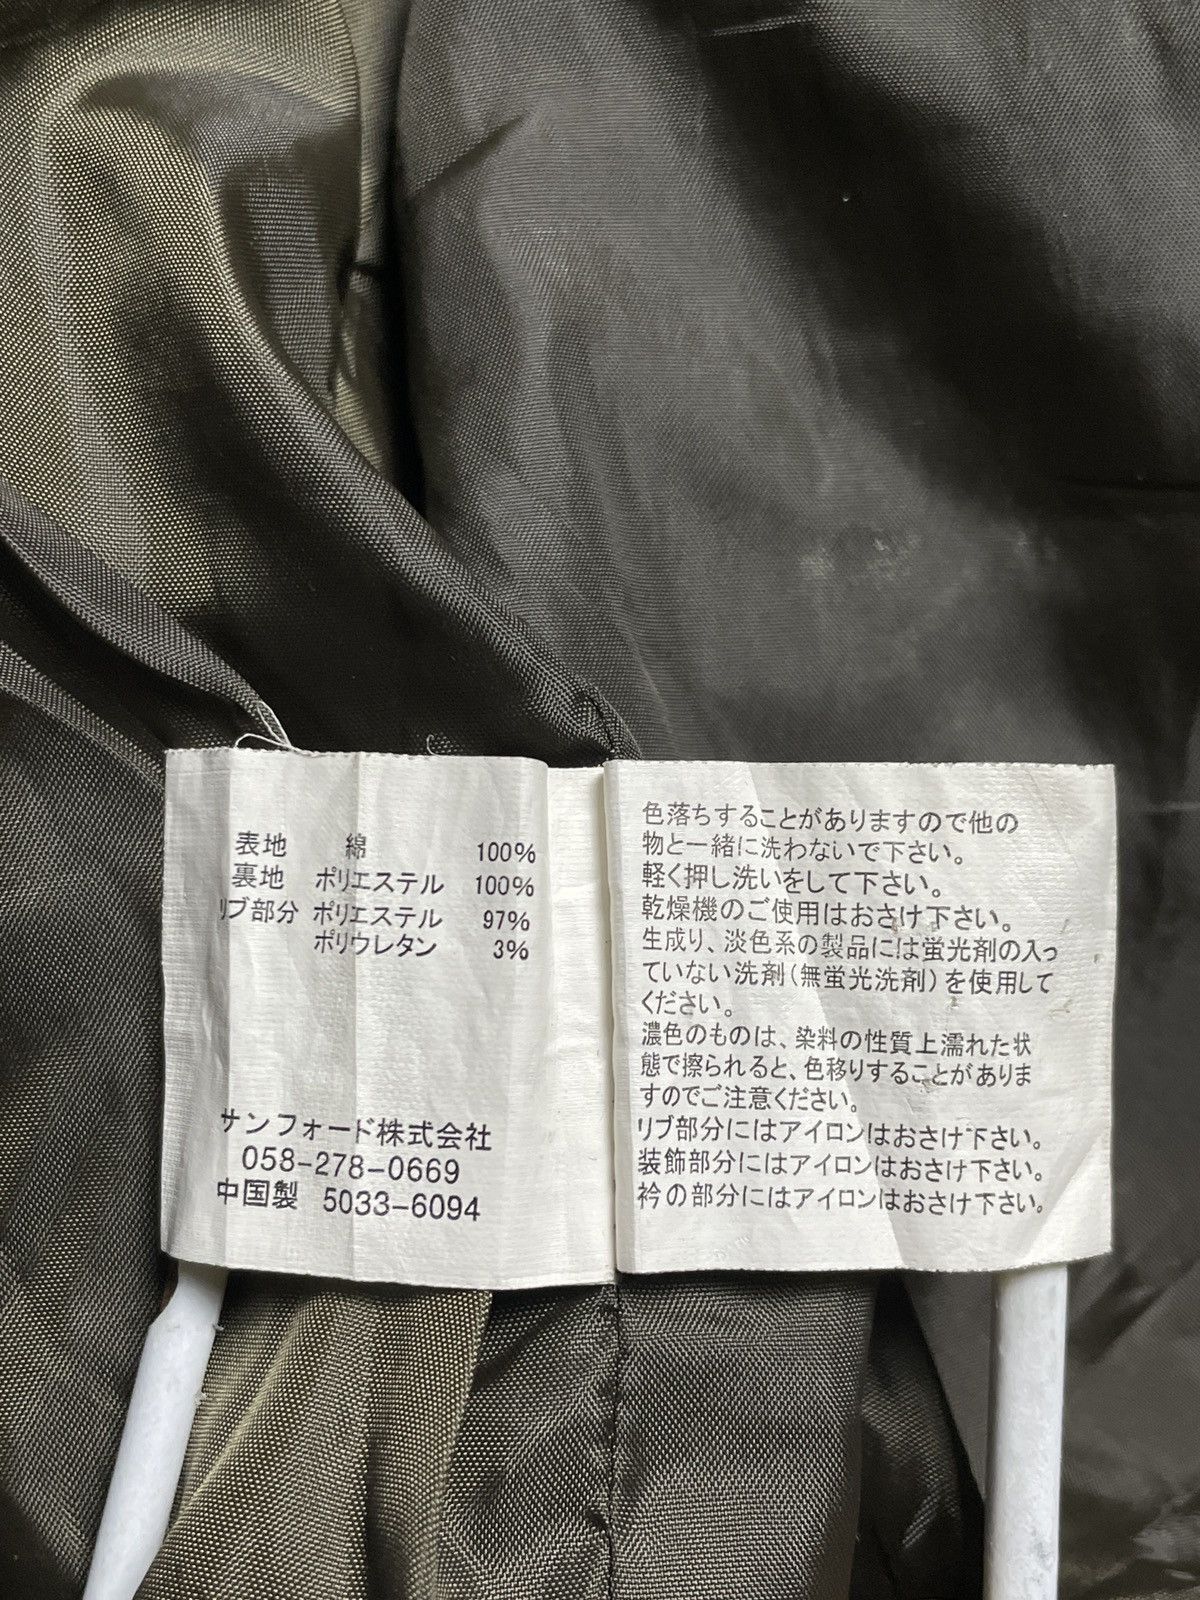 表地 綿 100%
裏地 ポリエステル 100%
リブ部分 ポリエステル 97%
ポリウレタン 3%
サンフォード株式会社
058-278-0669
中国製 5033-6094
色落ちすることがありますので他の
物と一緒に洗わないで下さい。
軽く押し洗いをして下さい。
乾燥機のご使用はおさけ下さい。
生成り、淡色系の製品には蛍光剤の入っ
ていない洗剤(無蛍光洗剤)を使用して
ください。
濃色のものは、染料の性質上濡れた状
態で擦られると、色移りすることがありま
すのでご注意ください。
リブ部分にはアイロンはおさけ下さい。
装飾部分にはアイロンはおさけ下さい。
衿の部分にはアイロンはおさけ下さい。